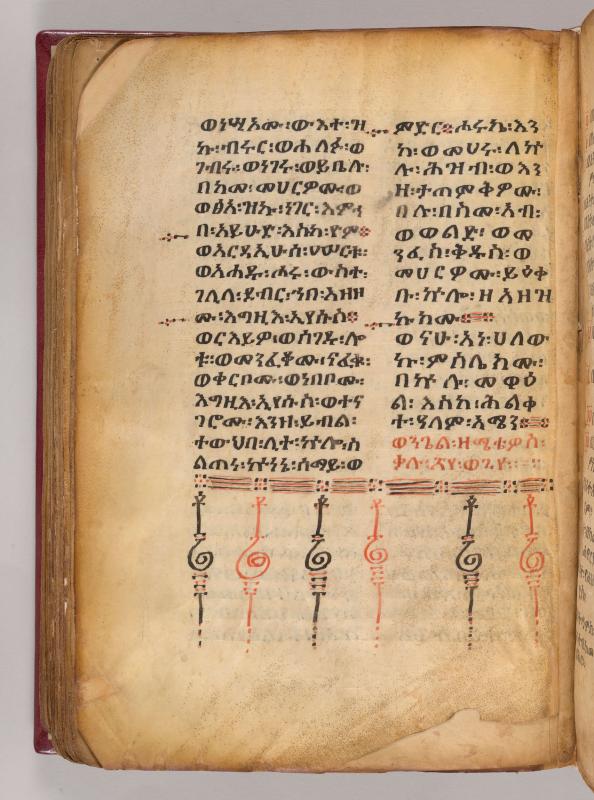 ወነሢኦሙ፡ውእተ፡ዝ
ኩ፡ብሩር፡ወሐለፉ፡ወ
ገብሩ፡ወነገሩ፡ወይቤሉ፡
በከመ፡መሀርዎሙ፡ወ
ወፅአ፡ዝኩ፡ነገር፡እምነ
በ፡አይሁድ፡እስከ፡ዮም።
ወአርዳኢሁሰ፡፲ወ፩ቱ፡
ወአሐዱ፡ሖሩ፡ውስተ፡
ገሊላ፡ደብር፡ኀበ፡አዘዘ
ሙ፡እግዚእ፡ኢየሱስ።
ወርእይዎ፡ወሰገዱ፡ሎ
ቱ፡ወመንፈቆሙ፡ናፈቁ፡
ወቀርቦሙ፡ወነበቦሙ፡
እግዚእ፡ኢየሱስ፡ወተና
ገሮሙ፡እንዘ፡ይብል፡
ተውህበ፡ሊተ፡ኵሎ፡ስ
ልጠነ፡ኵነኔ፡ሰማይ፡ወ
ምድር።ሖሩኬ፡እን
ከ፡ወመሀሩ፡ለኵ
ሉ፡ሕዝብ፡ወእን
ዘ፡ታጠምቅዎሙ፡
በሉ፡በስመ፡አብ፡
ወወልድ፡ወመ
ንፈስ፡ቅዱስ፡ወ
መሀርዎሙ፡ይዕቀ
ቡ፡ኵሎ፡ዘአዘዝ
ኩክሙ።
ወናሁ፡አነ፡ሀለው
ኩ፡ምስሌክሙ፡
በኵሉ፡መዋዕ
ል፡እስከ፡ሕልቀ
ተ፡ዓለም፡አሜን።
ወንጌል፡ዘማቴዎስ
ቃሉ፡